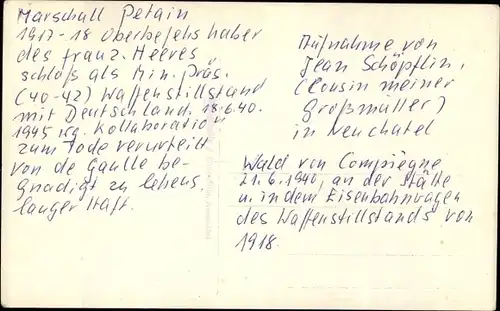 Marschall Petain
1917-18 Oberbefehshaber
des franz. Heeres
schloß als Min. Präs.
(40-42) Waffenstillstand
mit Deutschland. 18.6.40.
1945 wg. Kollaboration
zum Tode verurteilt
von de Gaulle be-
gnadigt zu lebens
langer Haft.
Aufnahme von
Jean Schöpflin,
(Cousin meiner
Großmutter)
in Neuchatel
Wald von Compiegne
21.6.1940, an der Stätte
u. in dem Eisenbahnwagen
des Waffenstillstands von
1918.